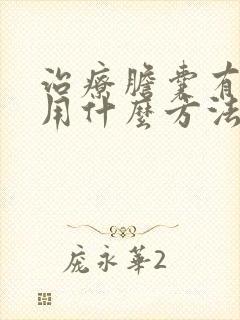 治療膽囊有
用什麼方法
龐永華2